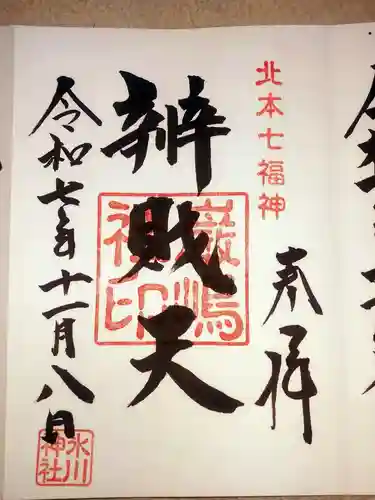 北本七福神
奉拝
辨財天
嚴嶋社印
令和七年十一月八日
氷川神社